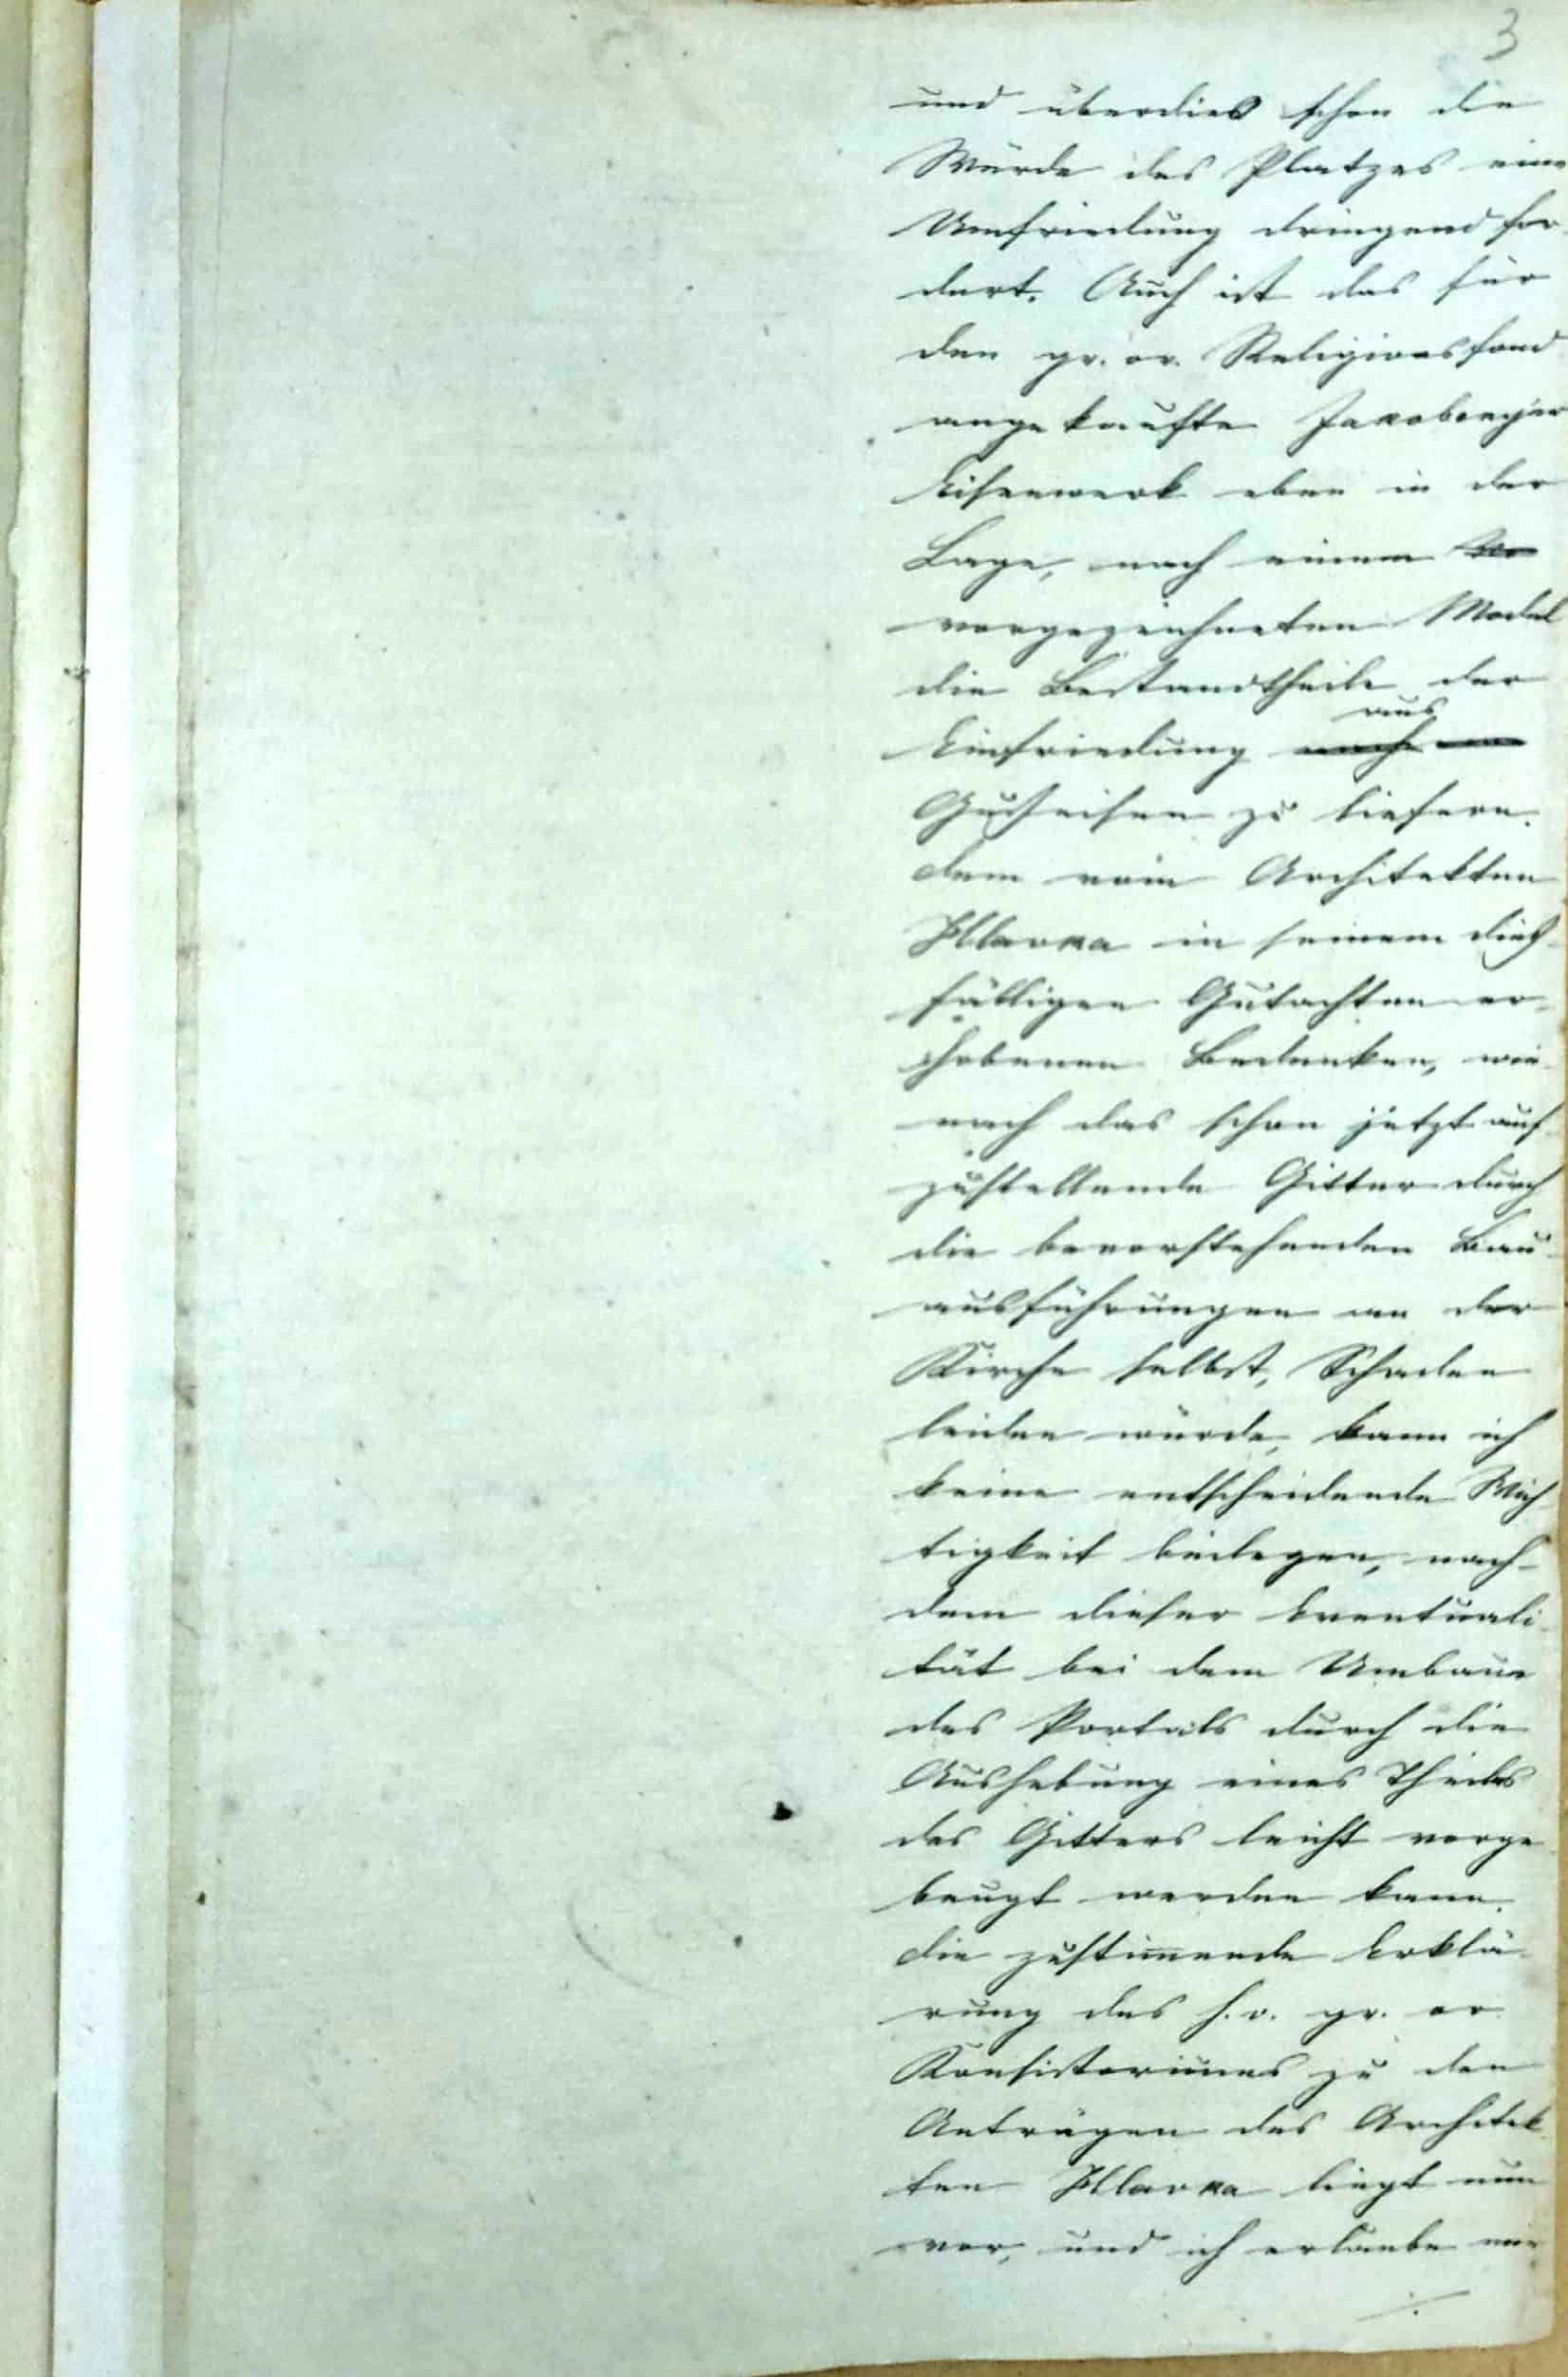 3
und überdies schon die
Würde des Platzes eine
Umfriedung dringend for-
dert. Auch ist das für
den gr. or. Religionsfond
angekaufte Jakobenyer
Eisenwerk eben in der
Lage, nach einem
vorgezeichneten Model
die Bestandtheile der
aus
Einfriedung nach
Gußeisen zu liefern.
dem vom Architekten
Hlavka in seinem dieß-
fälligen Gutachten er-
hobenen Bedenken, wie-
nach das schon jetzt auf-
zustellende Gitter durch
die bevorstehenden Bau-
ausführungen an der
Kirche selbst, Schaden
leiden würde, kann ich
keine entscheidende Wich-
tigkeit beilegen, nach-
dem dieser Eventuali-
tät bei dem Umbaue
des Portals durch die
Aushebung eines Theiles
des Gitters leicht vorge-
beugt werden kann.
die zustimmende Erklä-
rung des h. o. gr. or.
Konsistoriums zu den
Anträgen des Architek-
ten Hlavka liegt nun
vor, und ich erlaube mir
./.